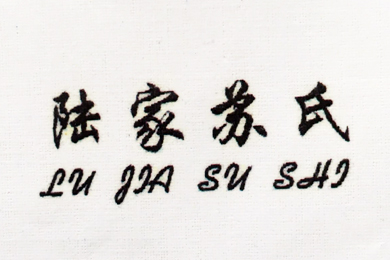 陆家苏氏
LU JIA SU SHI